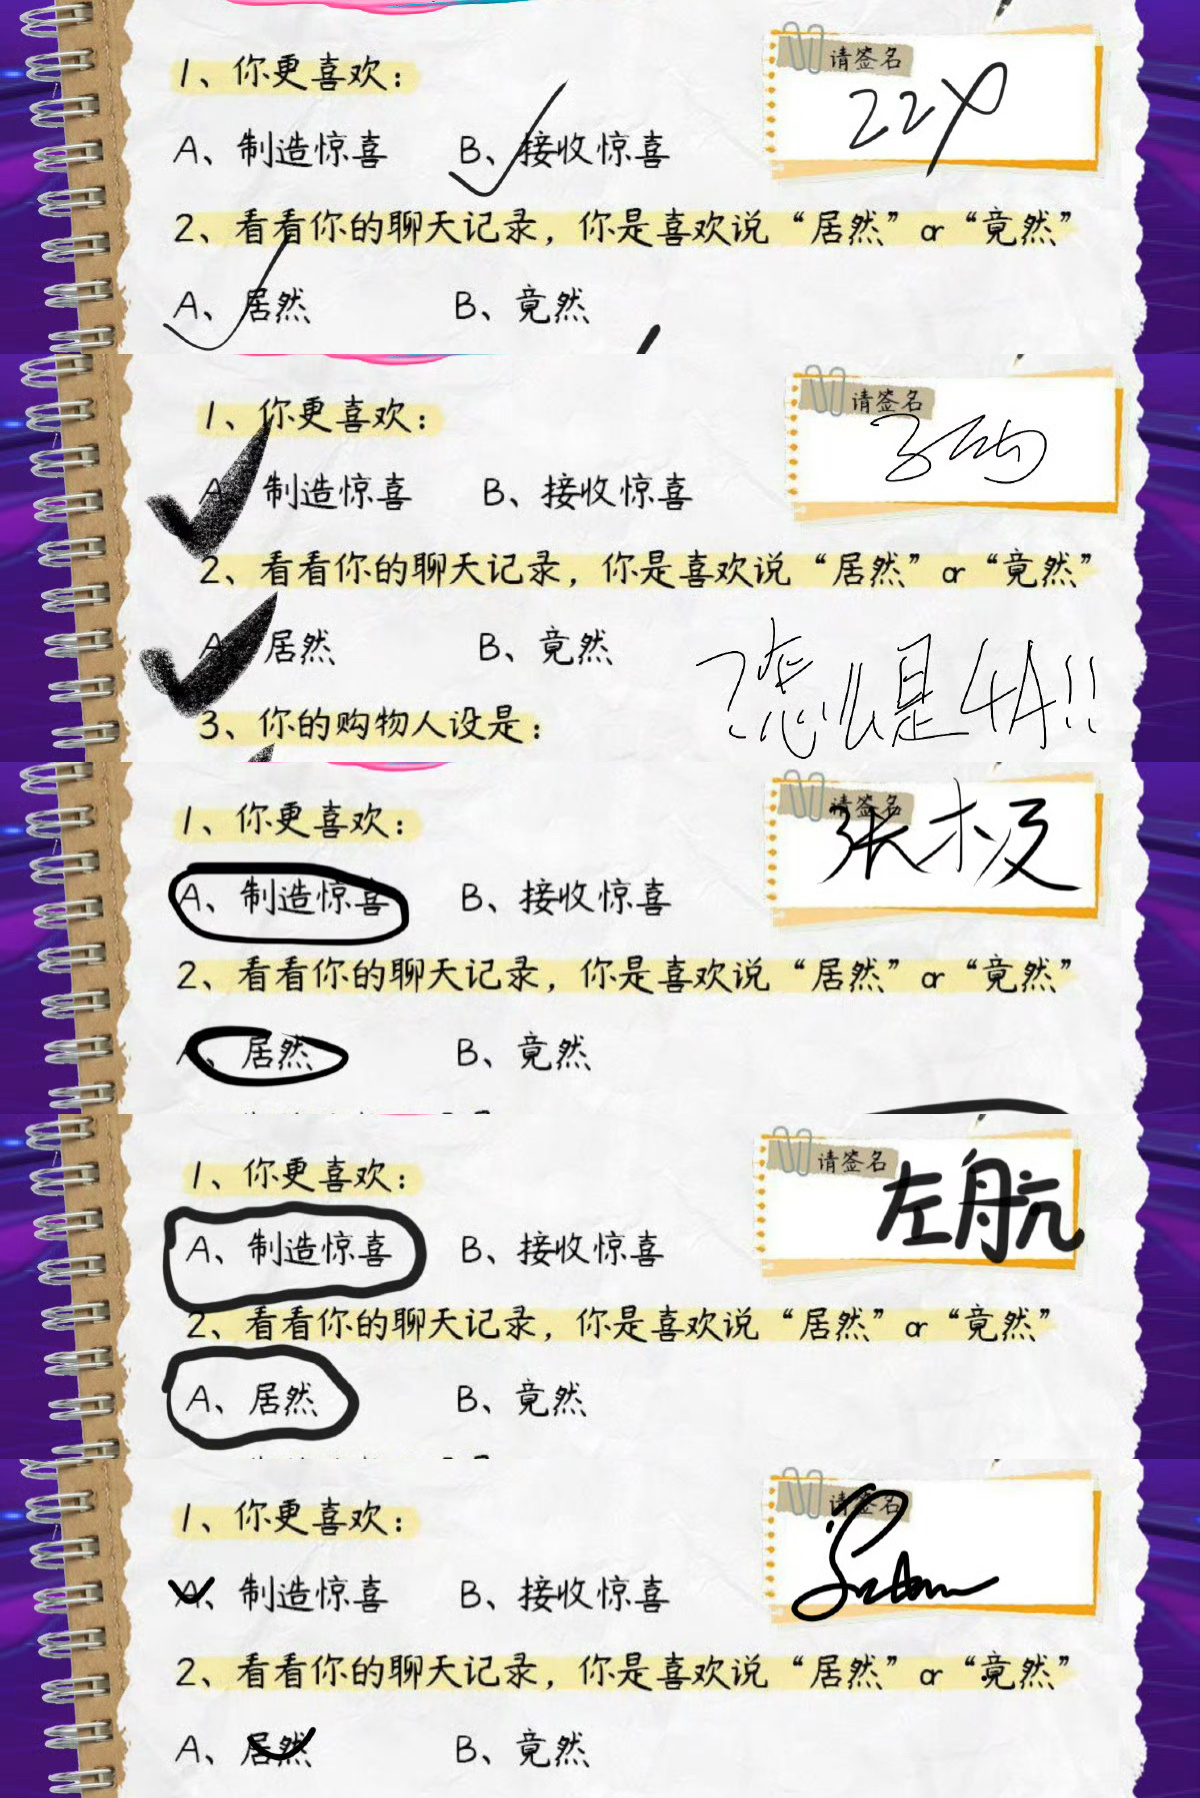 请签名
1、你更喜欢：
22y
A、制造惊喜 B、接收惊喜
2、看看你的聊天记录，你是喜欢说“居然”or“竟然”
A、居然 B、竟然
请签名
1、你更喜欢：
A 制造惊喜 B、接收惊喜
2、看看你的聊天记录，你是喜欢说“居然”or“竟然”
A、居然 B、竟然
?怎么是4A!!
3、你的购物人设是：
请签名
1、你更喜欢：
张极
A、制造惊喜 B、接收惊喜
2、看看你的聊天记录，你是喜欢说“居然”or“竟然”
A、居然 B、竟然
请签名
1、你更喜欢：
左航
A、制造惊喜 B、接收惊喜
2、看看你的聊天记录，你是喜欢说“居然”or“竟然”
A、居然 B、竟然
请签名
1、你更喜欢：
A、制造惊喜 B、接收惊喜
2、看看你的聊天记录，你是喜欢说“居然”or“竟然”
A、居然 B、竟然